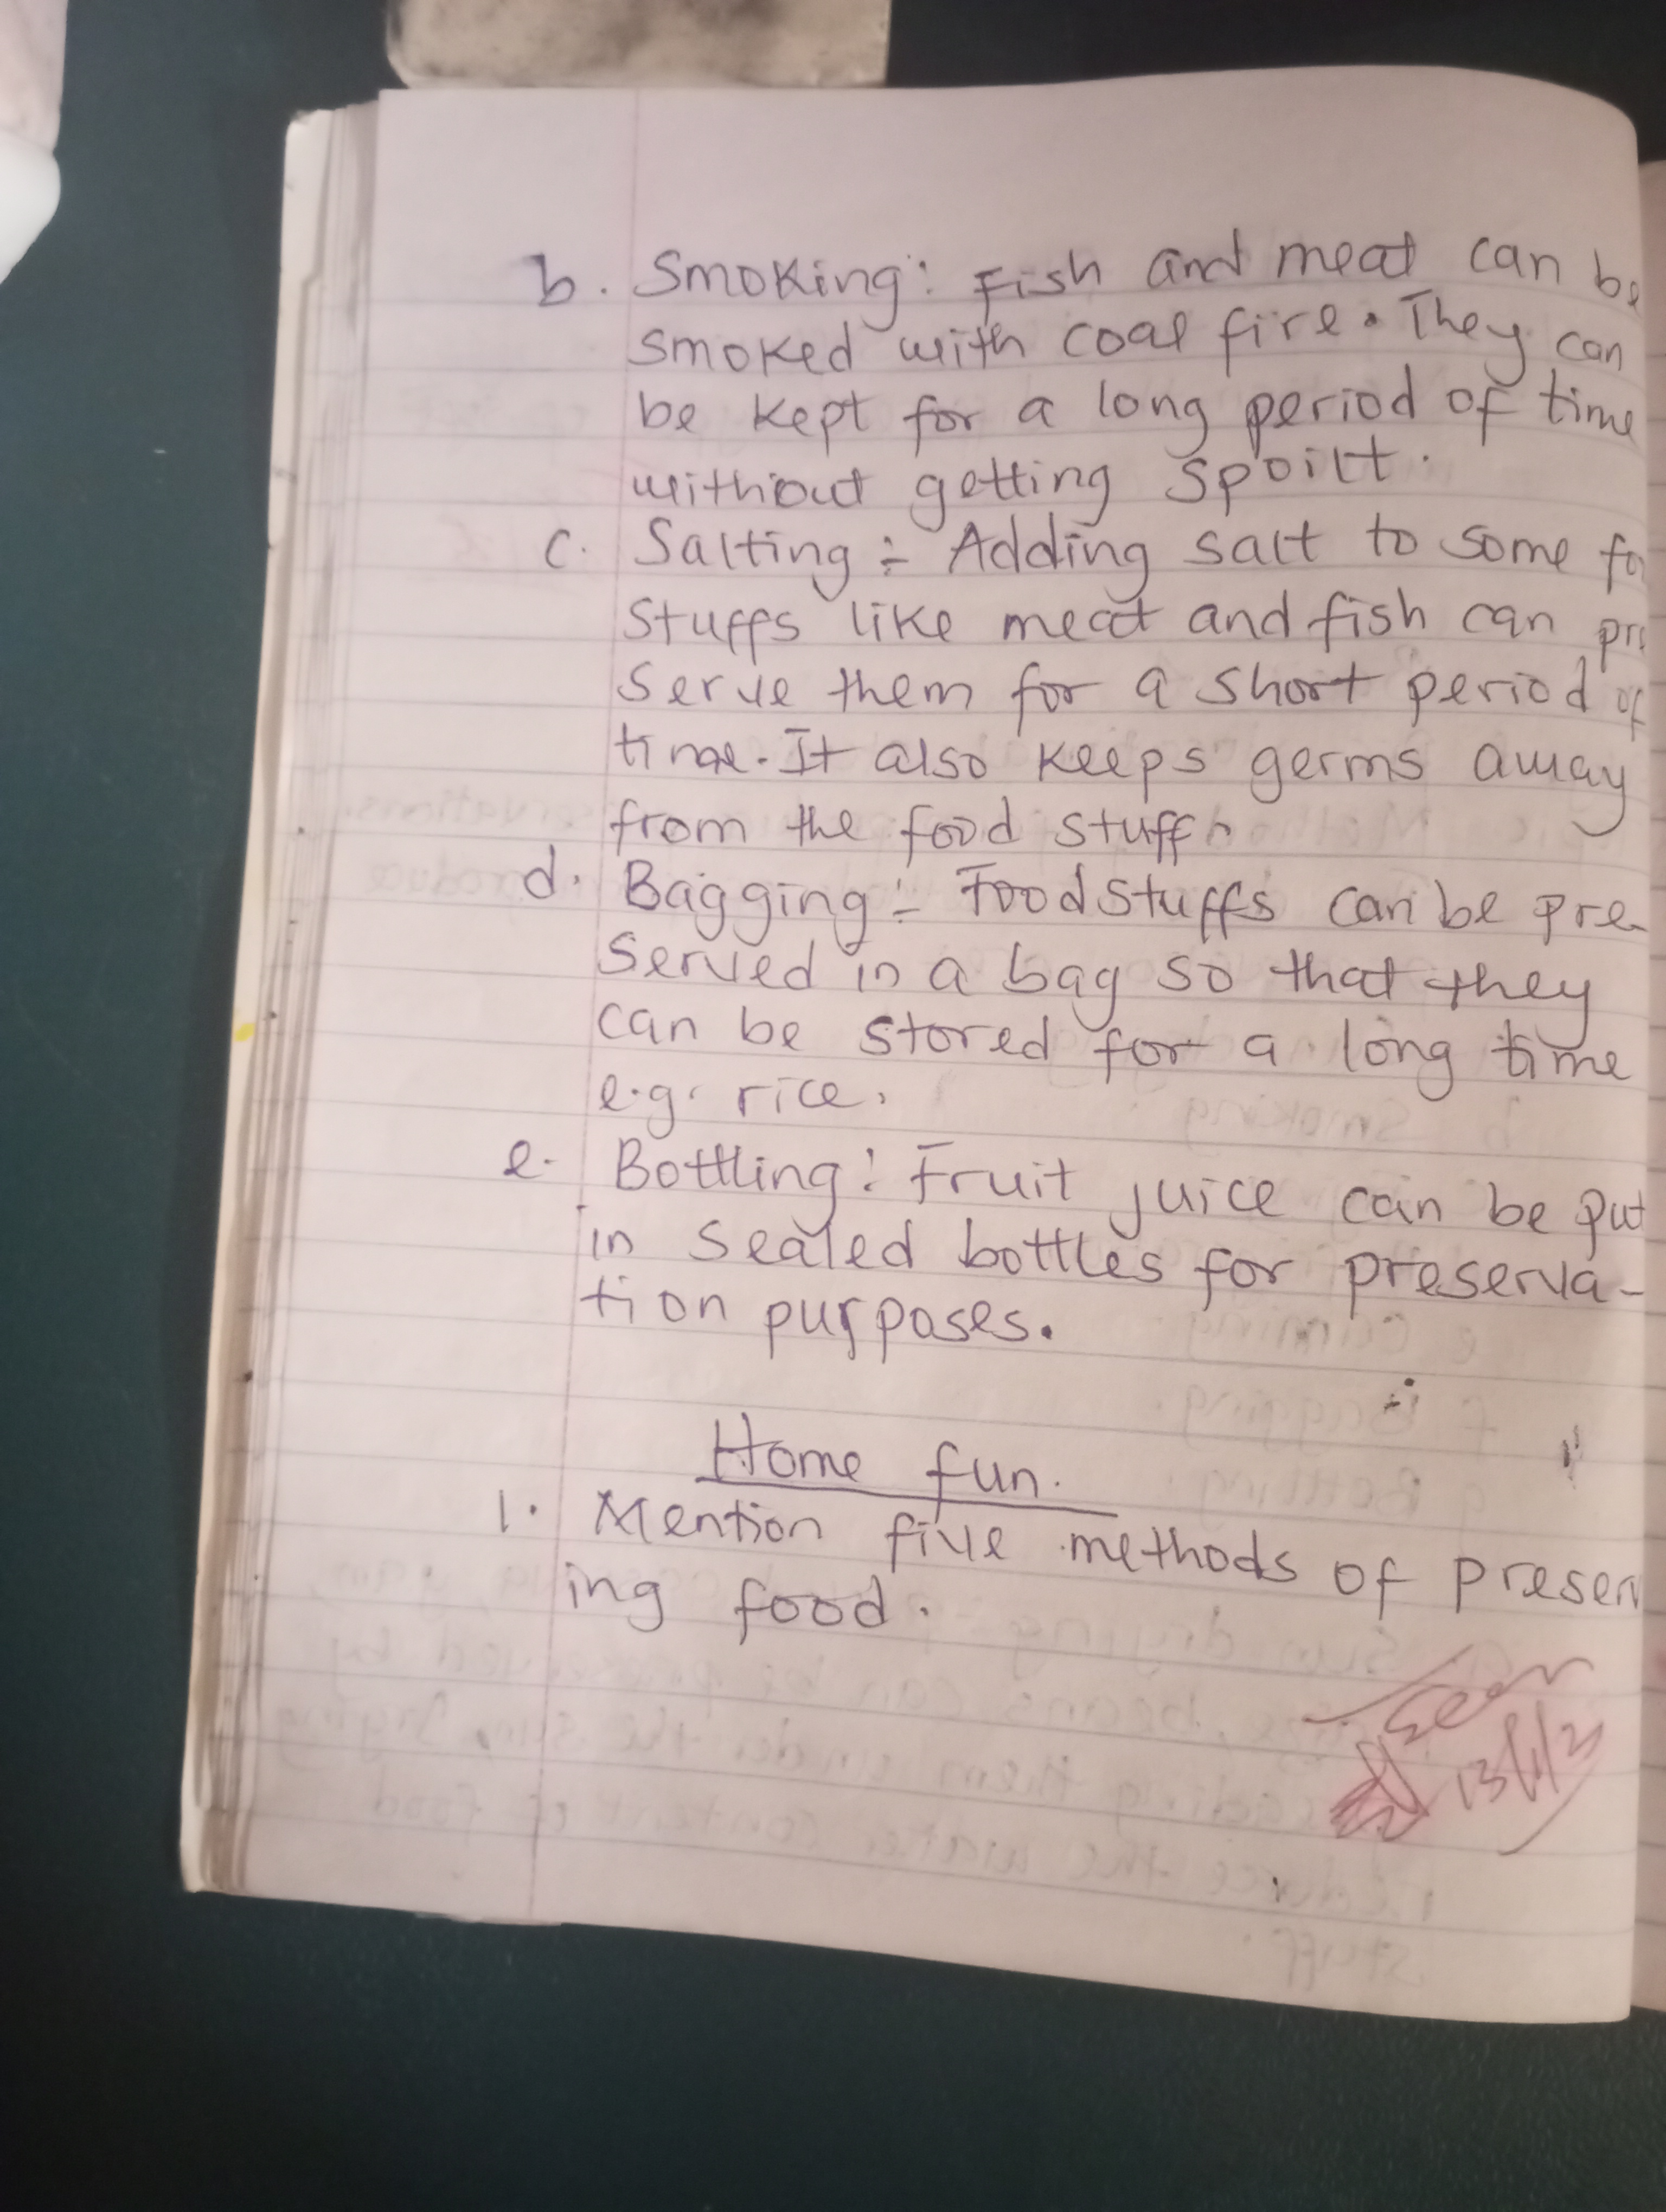 b. Smoking: Fish and meat can be
smoked with coal fire. They can
be kept for a long period of time
without getting spoilt.
c. Salting :- Adding salt to some fo
stuffs like meat and fish can pre
serve them for a short period of
time. It also keeps germs away
from the food stuff.
d. Bagging :- Foodstuffs can be pre-
served in a bag so that they
can be stored for a long time
e.g. rice.
e. Bottling: Fruit juice can be put
in sealed bottles for preserva-
tion purposes.
Home fun.
1. Mention five methods of preserv
ing food.
Seen
13/1/2